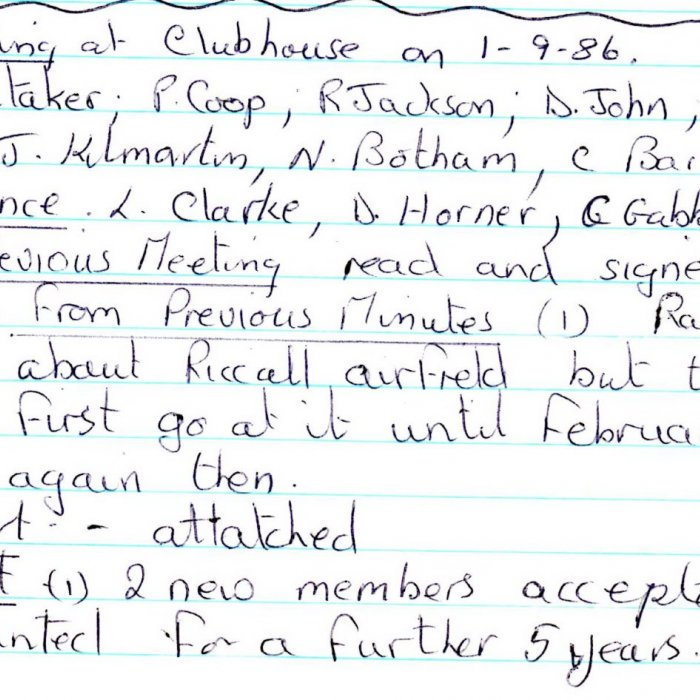 ing at Clubhouse on 1-9-86.
taker; P. Coop, R Jackson; D. John,
J. Kilmartin, N. Botham, C Bar
nce. L. Clarke, D. Horner, G Gabb
evious Meeting read and signe
From Previous Minutes (1) Ra
about Riccall airfield but t
first go at it until Februa
again then.
t - attatched
(1) 2 new members accept
nted for a further 5 years.